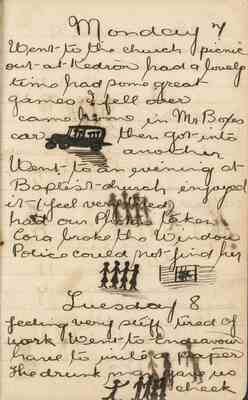 Monday 7
Went to the church picnic
out at Kedron had a lovely
time had some great
games I fell over
came home in Mr Boxes
car then got into
another
Went to an evening at
Baptist church enjoyed
it I feel very tired
had our Photo taken
Cora broke the Window
Police could not find her
Tuesday 8
feeling very stiff tired of
work Went to Endeavour
have to write a paper
The drunk man gave us
cheek